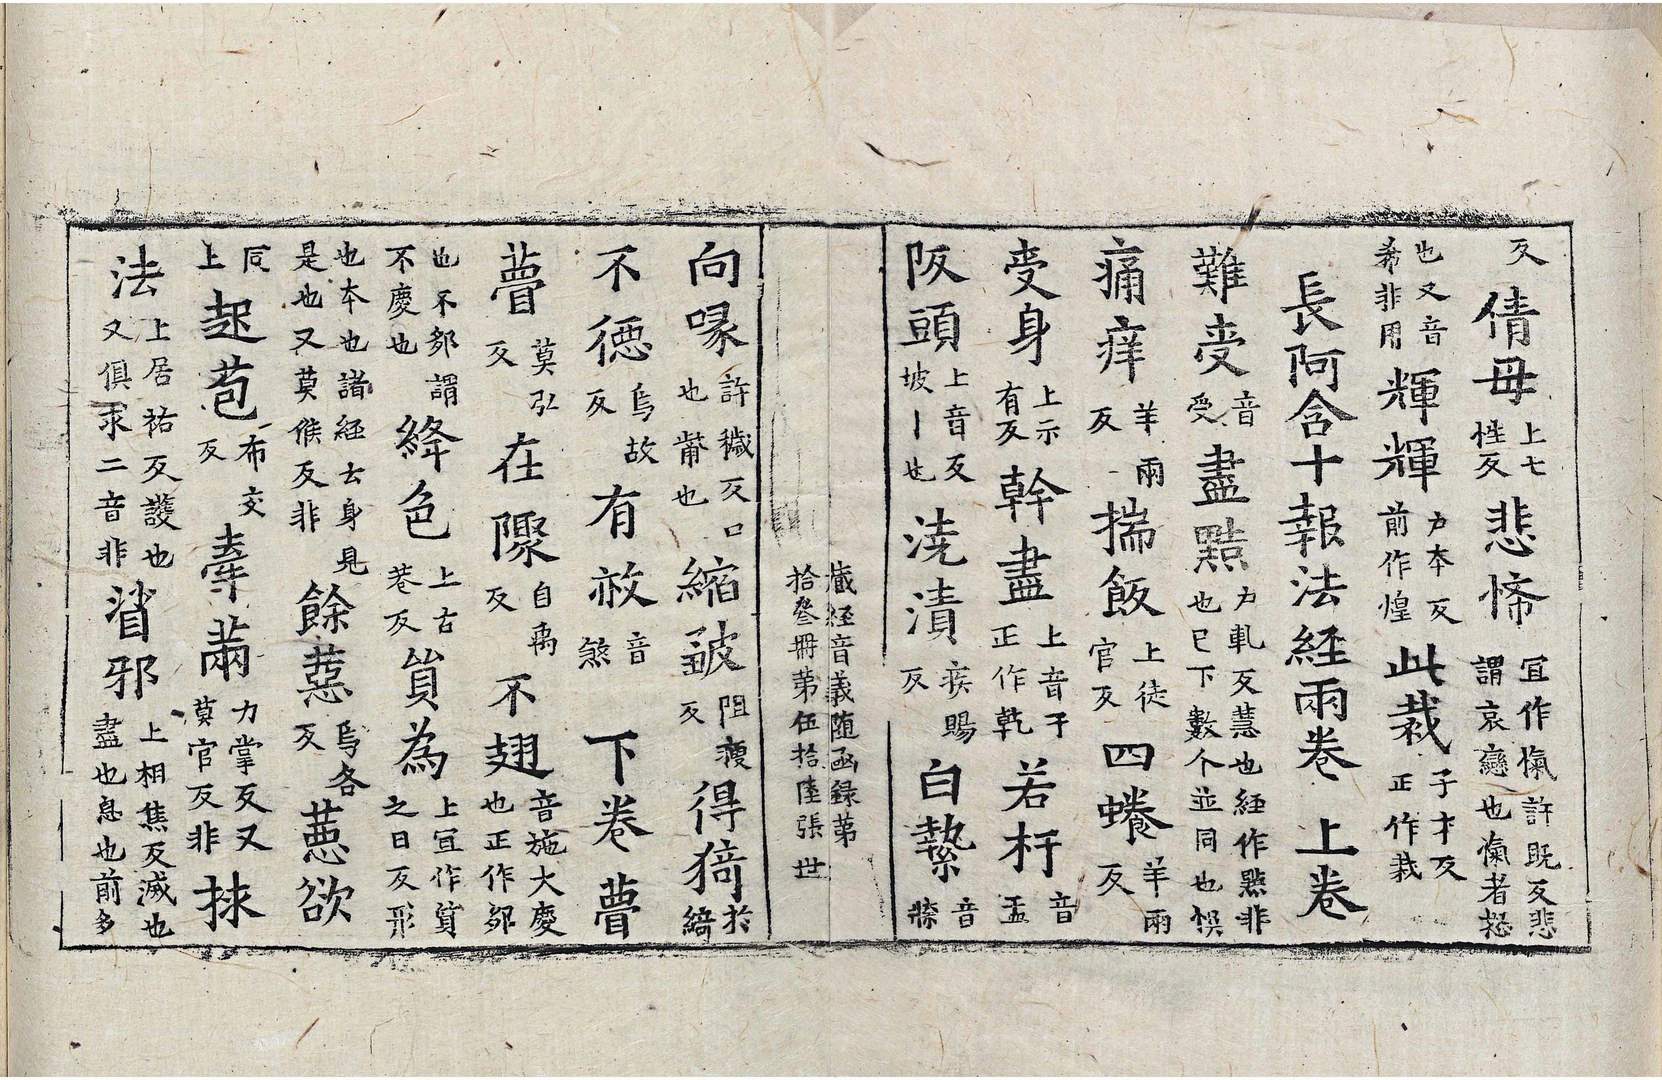 反倩毋上七性反悲悕冝作愾許旣反悲謂哀戀也愾者怒
也又音希非用輝輝力本反前作煌此裁子才反正作栽
長阿含十報法経兩卷上卷
難𡬳音受盡㸃力軋反慧也経作㸃非也已下數个並同也悞
痛痒羊兩反揣飯上徒官反四蜷羊兩反
𡬳身上示有反幹盡上音干正作乾若杅音盂
阪頭上音反坡丨也浇漬疾賜反白𦃇音牒
藏経音義随函録第
拾叄冊第伍拾陸張 世
向喙許穢反口也觜也縮皷阻瘦反得猗於綺
不德烏故反有敜音煞下卷瞢
瞢莫弘反在隳自禹反不翅音施大慶也正作邜
也不邜謂不慶也絳色上古巷反貿為上冝作貿之日反形
也本也諸経云身見是也又莫候反非餘蒠烏各反蒠欲
反上起苞布交反牽㒼力掌反又莫官反非捄
法上居祐反護也又俱求二音非渻邪上相焦反滅也盡也息也前多